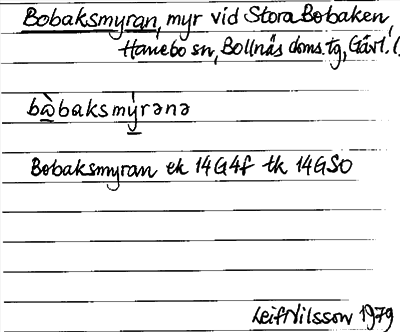 Bobaksmyran, myr vid Stora Bobaken,
Hanebo sn, Bollnäs doms.tg, Gävl. l.
bàbaksmýrənə
Bobaksmyran ek 14G4f tk 14GSO
Leif Nilsson 1979